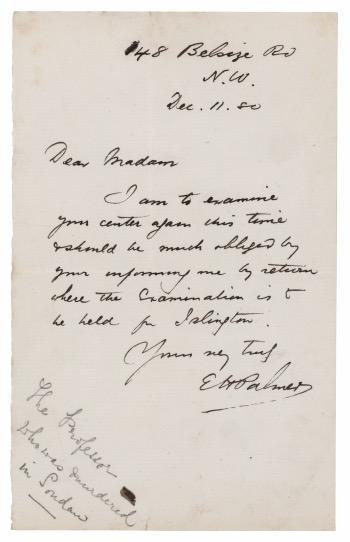 148 Belsize Rd
N.W.
Dec. 11. 80
Dear Madam
I am to examine
your center again this time
& should be much obliged by
your informing me by return
where the Examination is to
be held for Islington.
Yours very truly
E H Palmer
The Professor
who was murdered
in Soudan